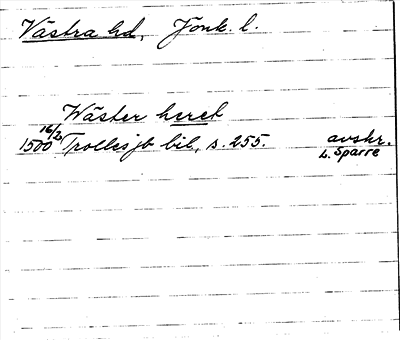 Västra hd, Jönk. l.
Wäster heret
1500 16/2 Trollesjö bil, s. 255. avskr.
L. Sparre